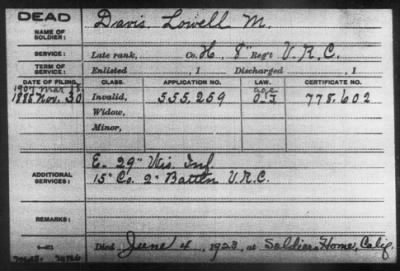 DEAD
NAME OF SOLDIER: Davis, Lowell M.
SERVICE: Late rank, Co. H, 8" Reg't V.R.C.
TERM OF SERVICE: Enlisted , 1 Discharged , 1
DATE OF FILING. CLASS. APPLICATION NO. LAW. CERTIFICATE NO.
1907 Mar
1886 Nov. 30 Invalid, 555,259 778,602
Widow,
Minor,
ADDITIONAL SERVICES: E. 29" Wis. Inf
15" Co. 2" Battln V.R.C.
REMARKS:
Died June 4, 1923, at Soldiers Home, Calif.